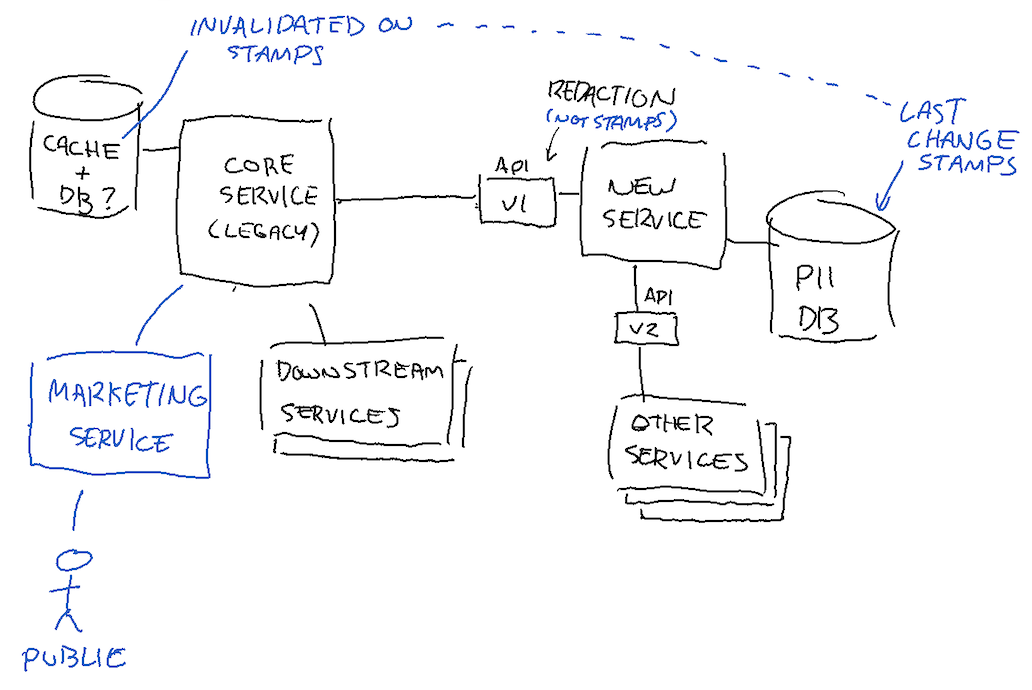 INVALIDATED ON
STAMPS
CACHE
+
DB?
CORE
SERVICE
(LEGACY)
REDACTION
(NOT STAMPS)
API
V1
NEW
SERVICE
LAST
CHANGE
STAMPS
PII
DB
API
V2
MARKETING
SERVICE
DOWNSTREAM
SERVICES
OTHER
SERVICES
PUBLIC